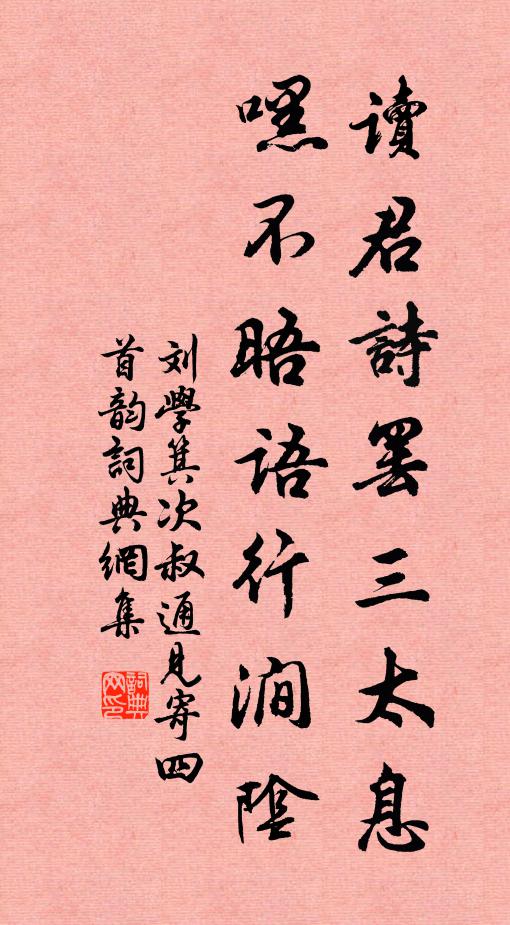 讀君詩罢三太息
嘿不晤语行澗陰
刘學箕次叔通見寄四
首韵詞典網集
詞典
网印